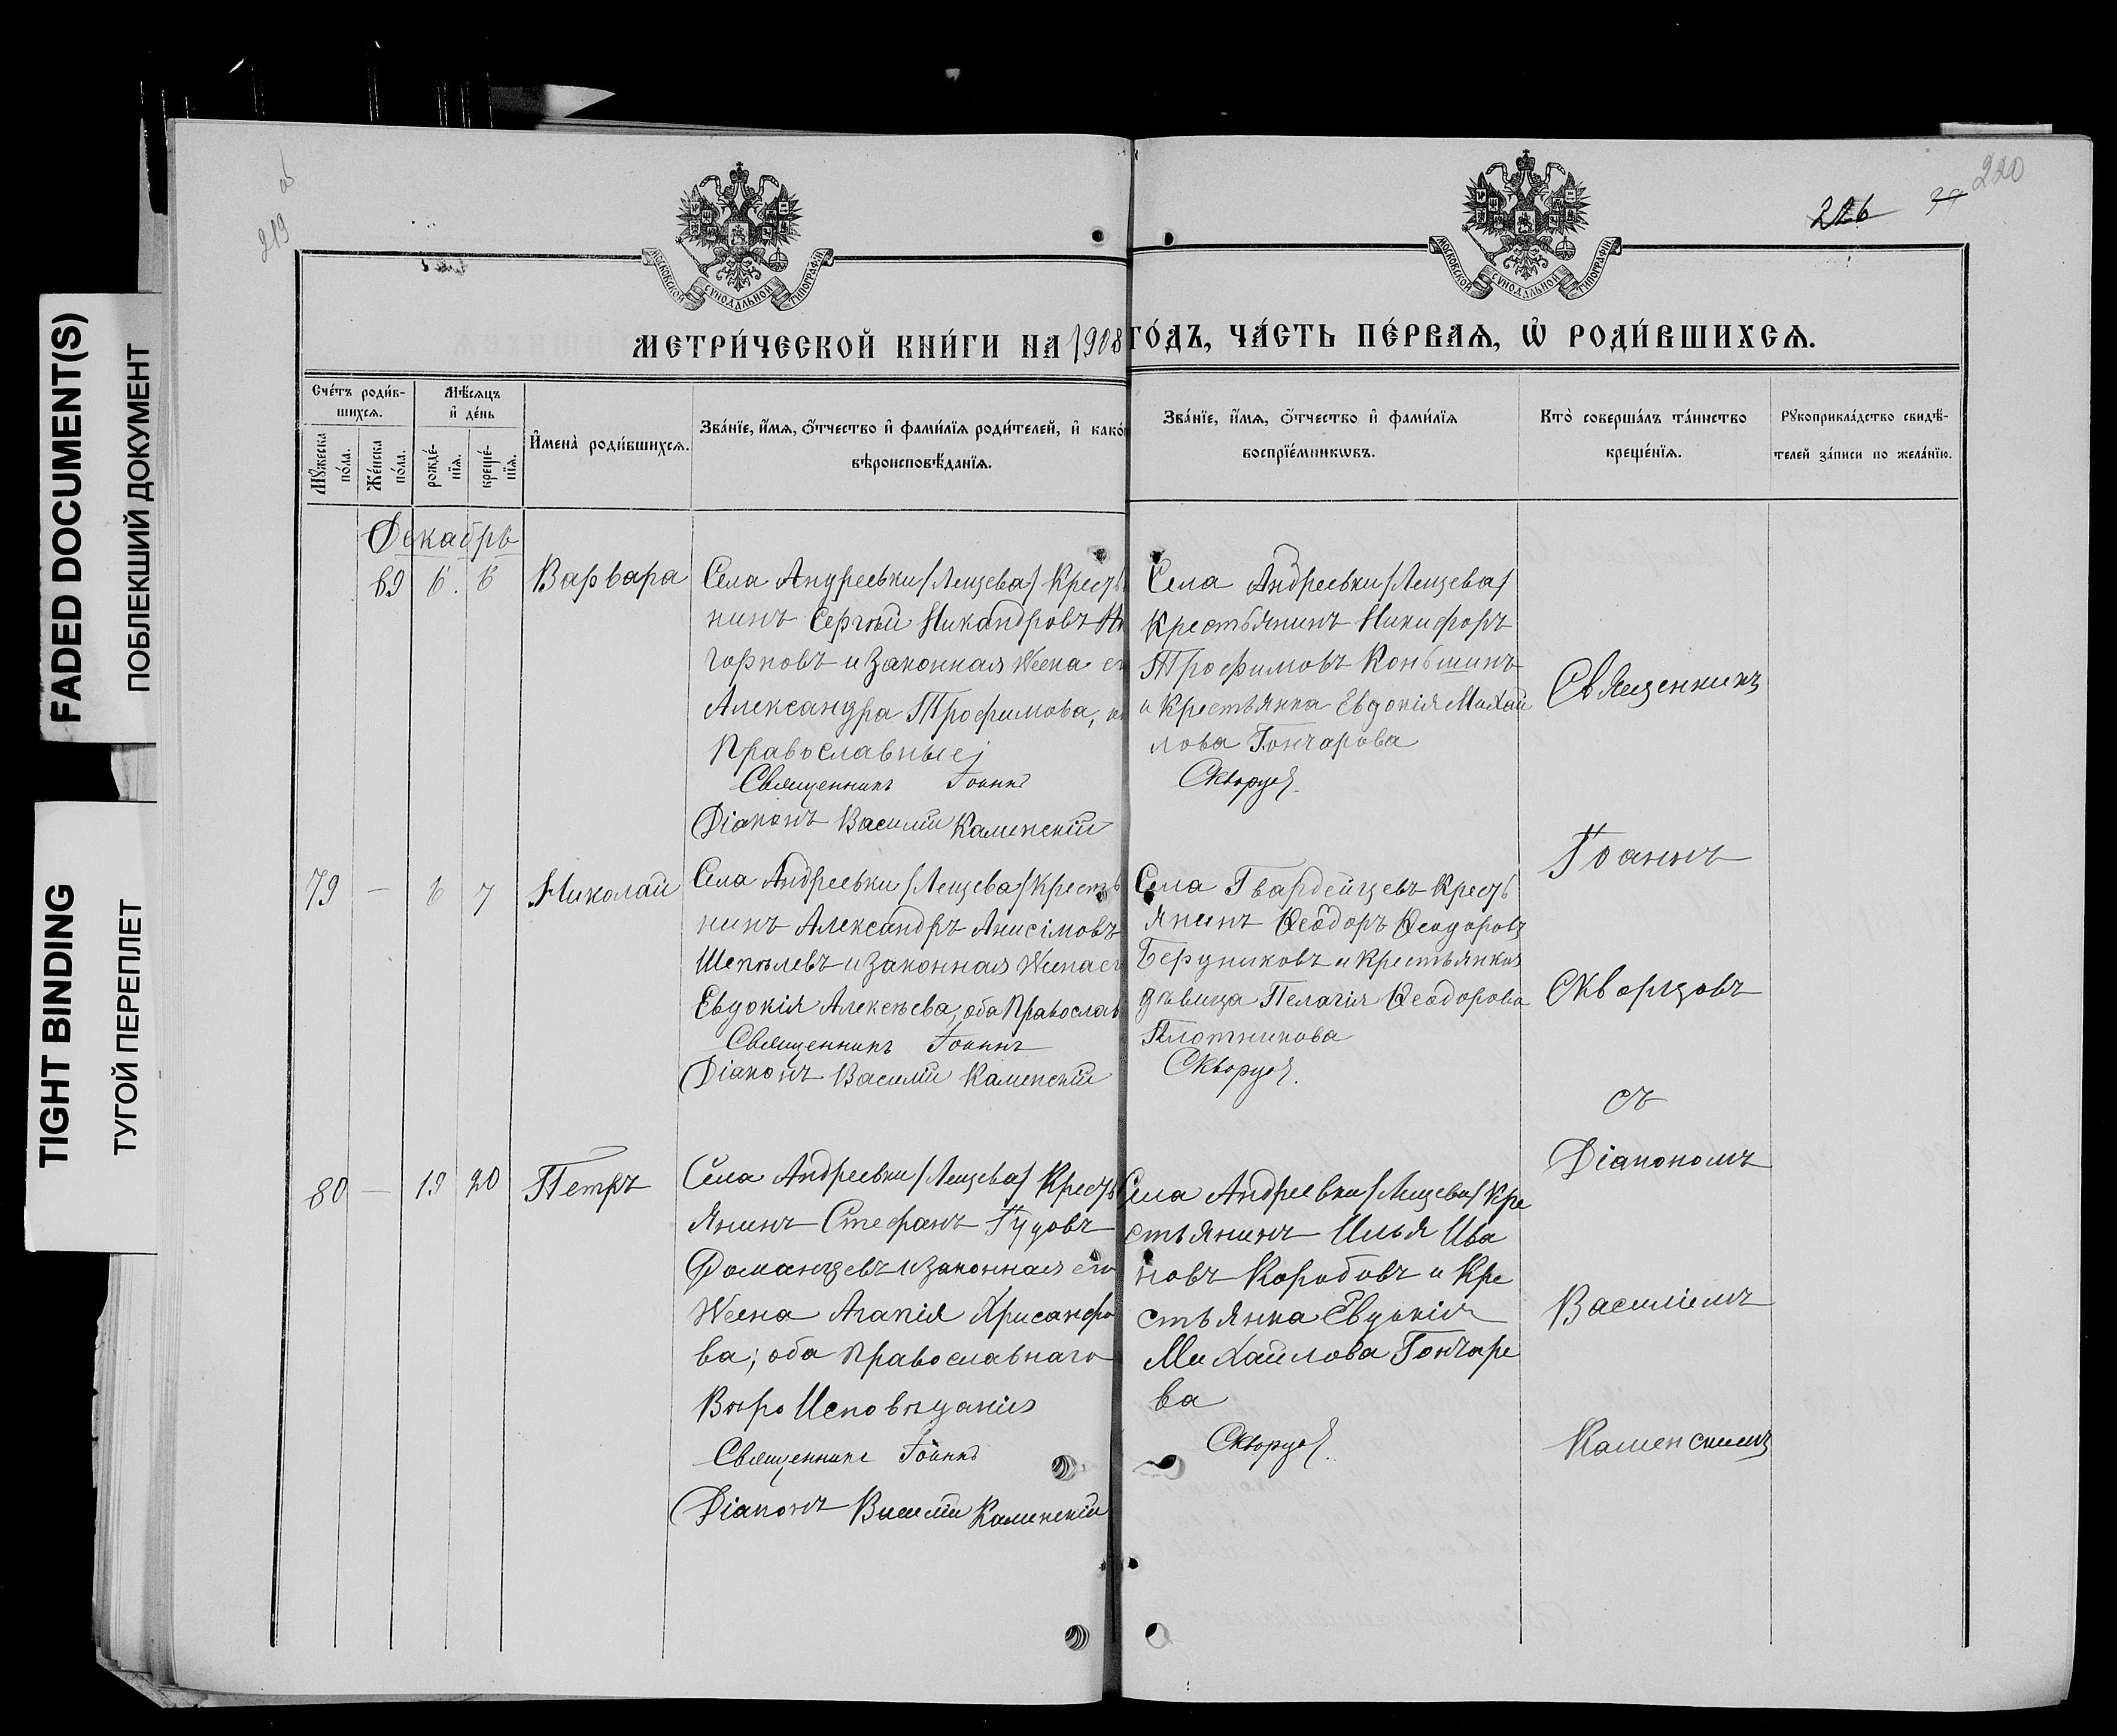 FADED DOCUMENT(S)
ПОБЛЕКШИЙ ДОКУМЕНТ
TIGHT BINDING
ТУГОЙ ПЕРЕПЛЕТ
219 об
226
220
МОСКОВСКОЙ СѴНОДАЛЬНОЙ ТИПОГРАФІИ
МОСКОВСКОЙ СѴНОДАЛЬНОЙ ТИПОГРАФІИ
МЕТРИ́ЧЕСКОЙ КНИ́ГИ НА 1908 ГО́ДЪ, ЧА́СТЬ ПЕ́РВАѦ, Ѡ҆ РОДИ́ВШИХСѦ.
Сче́тъ роди́в-
шихсѧ.
Мꙋ́жеска
по́ла.
Же́нска
по́ла.
Мѣ́сѧцъ
и҆ де́нь
рожде́-
нїѧ.
креще́-
нїѧ.
И҆мена̀ роди́вшихсѧ.
Зва́нїе, и҆́мѧ, ѻ҆́тчество и҆ фами́лїѧ роди́телей, и҆ како́
вѣроисповѣ́данїѧ.
Зва́нїе, и҆́мѧ, ѻ҆́тчество и҆ фами́лїѧ
воспрїе́мникѡвъ.
Кто̀ соверша́лъ та́инство
креще́нїѧ.
Рꙋкоприкла́дство свидѣ́-
телей за́писи по жела́нїю.
Декабрь
69 6. 6 Варвара
Села Андреевки /Лещева/ Кресть
нинъ Сергѣй Никандровъ
горновъ и законная жена ег
Александра Трофимова,
Православные;
Священникъ Іоаннъ
Діаконъ Василій Каменскій
Села Андреевки /Лещева/
Крестьянинъ Никифоръ
Трофимовъ Коньшинъ
и Крестьянка Евдокія Михай
лова Гончарова
Скворцов
79 — 6 7 Николай
Села Андреевки /Лещева/ Кресть
нинъ Александръ Анисімовъ
Шепелевъ и законная жена ег
Евдокія Алексѣева, оба Православ
Священникъ Іоаннъ
Діаконъ Василій Каменскій
Села Гвардейцевъ Кресть
янинъ Ѳеодоръ Ѳеодоровъ
Бердниковъ и Крестьянка
дѣвица Пелагія Ѳеодорова
Плотникова
Скворцов
80 — 19 20 Петръ
Села Андреевки /Лещева/ Кресть
янинъ Стефанъ Гудовъ
Доманцевъ и законная его
жена Агапія Хрисанфо
ва; оба Православнаго
Вѣро Исповѣданія
Священникъ Іоаннъ
Діаконъ Василій Каменскій
Села Андреевки /Лещева/ Кре
стьянинъ Илья Ива
новъ Коробовъ и Кре
стьянка Евдокія
Михайлова Гончаро
ва
Скворцов
Священникъ
Іоаннъ
Скворцовъ
съ
Діакономъ
Василіемъ
Каменскимъ